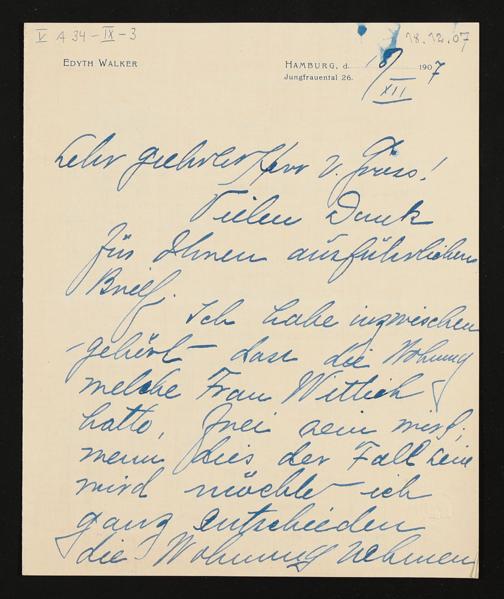 V A 34-IX-3
18.12.07
EDYTH WALKER
HAMBURG, d. 18/XII 1907
Jungfrauental 26.
Sehr geehrter Herr v. Gross!
Vielen Dank
für Ihren ausführlichen
Brief.
Ich habe inzwischen
gehört dass die Wohnung
welche Frau Wittich
hatte, frei sein wird;
wenn dies der Fall sein
wird möchte ich
ganz entschieden
die Wohnung nehmen